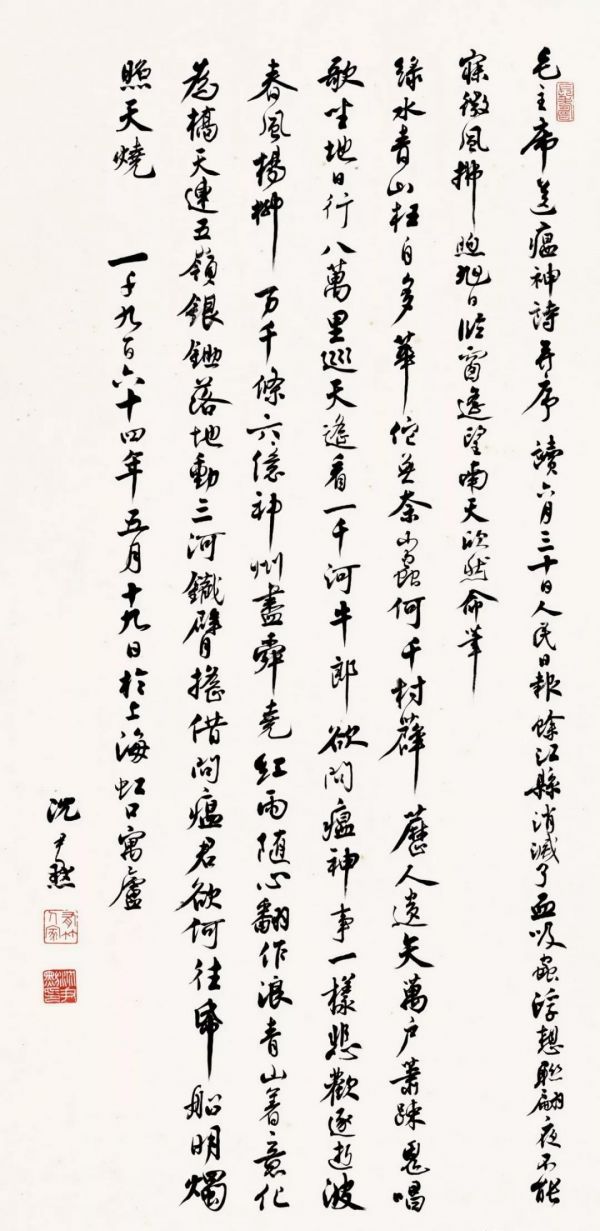 毛主席送瘟神詩并序 讀六月三十日人民日報餘江縣消滅了血吸蟲浮想聯翩夜不能
寐微風拂煦旭日臨窗遙望南天欣然命筆
綠水青山枉自多華佗無奈小蟲何千村薜藶人遺矢萬户蕭疎鬼唱
歌坐地日行八萬里巡天遙看一千河牛郎欲問瘟神事一樣悲歡逐逝波
春風楊柳万千條六億神州盡舜堯紅雨隨心翻作浪青山著意化
為橋天連五嶺銀鋤落地動三河鐵臂搖借問瘟君欲何往紙船明燭
照天燒 一千九百六十四年五月十九日於上海虹口寓廬
沈尹默
沈尹默印